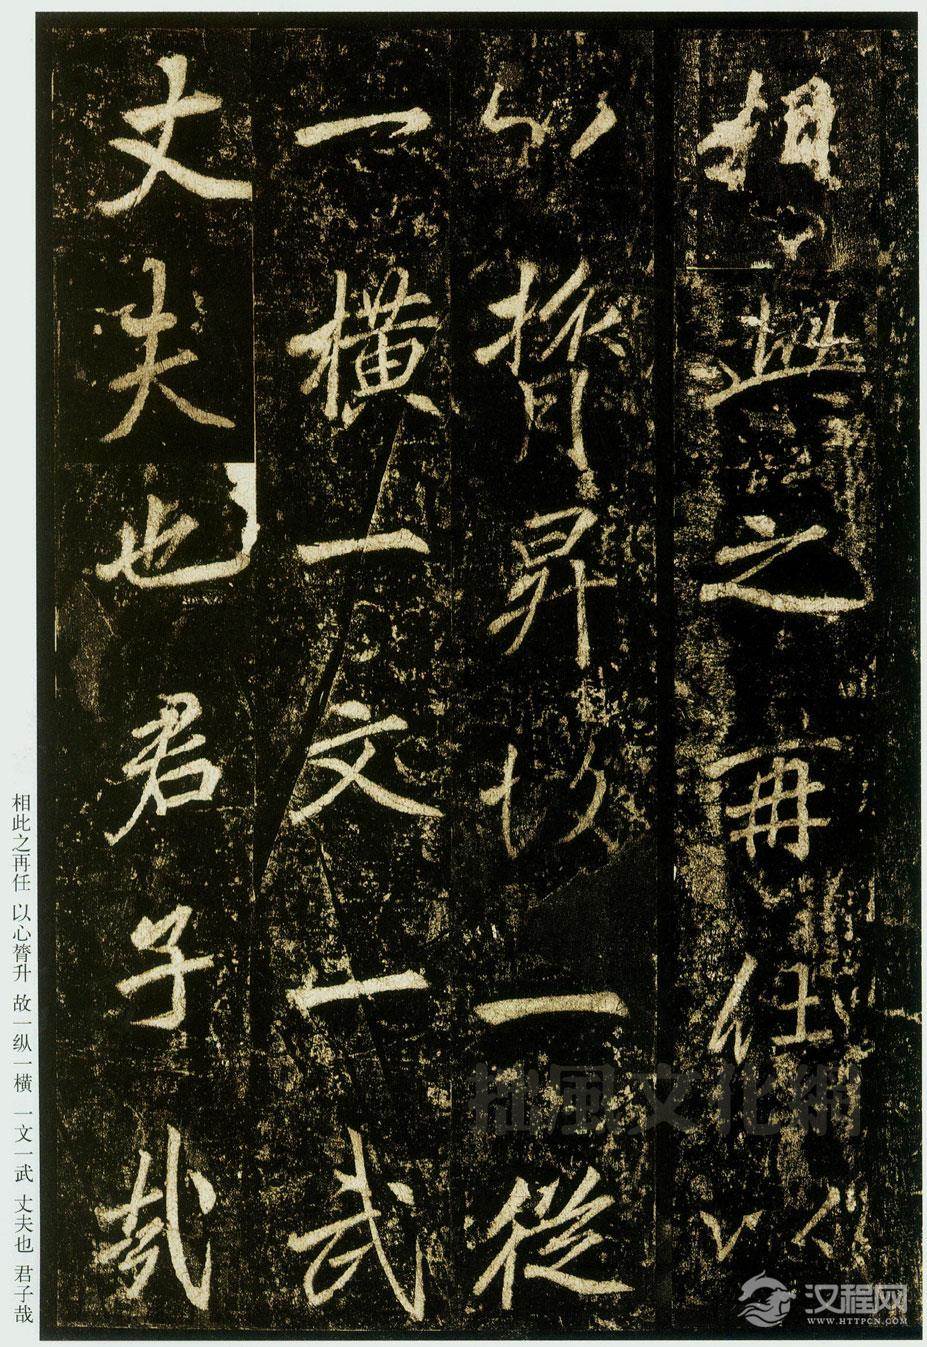 相此之再任以
心膂昇故一從
一橫一文一武
丈夫也君子哉
相此之再任 以心膂升 故一纵一横 一文一武 丈夫也 君子哉
拙風文化網
汉程网
WWW.HTTPCN.COM